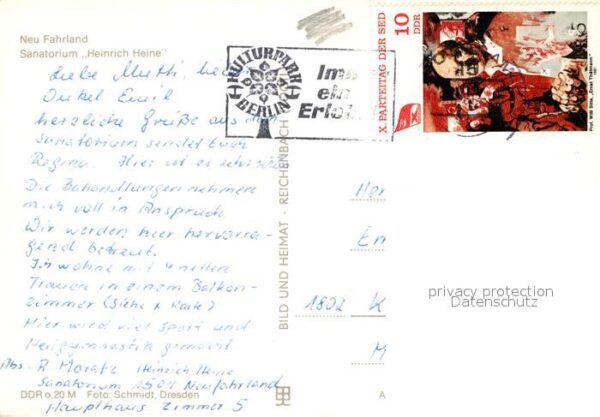 Neu Fahrland
Sanatorium „Heinrich Heine"
Liebe Mutti, lieber
Onkel Emil
herzliche Grüße aus dem
Sanatorium sendet Euch
Regina. Hier ist es sehr schön
Die Behandlungen nehmen
mich voll in Anspruch
Wir werden hier hervorra-
gend betreut.
Ich wohne mit 4 netten
Frauen in einem Balkon-
zimmer (siehe x Karte)
Hier wird viel Sport und
Heilgymnastik gemacht
Abs. R. Moratz Heinrich Heine
Sanatorium 1501 Neufahrland
Haupthaus Zimmer 5
DDR 0,20 M Foto: Schmidt, Dresden
BILD UND HEIMAT · REICHENBACH
KULTURPARK
BERLIN
Imm
ein
Erleb
X. PARTEITAG DER SED
10
DDR
Prof. Willi Sitte, „Ernst Thälmann"
Her
Em
1802 K
M
A
privacy protection
Datenschutz